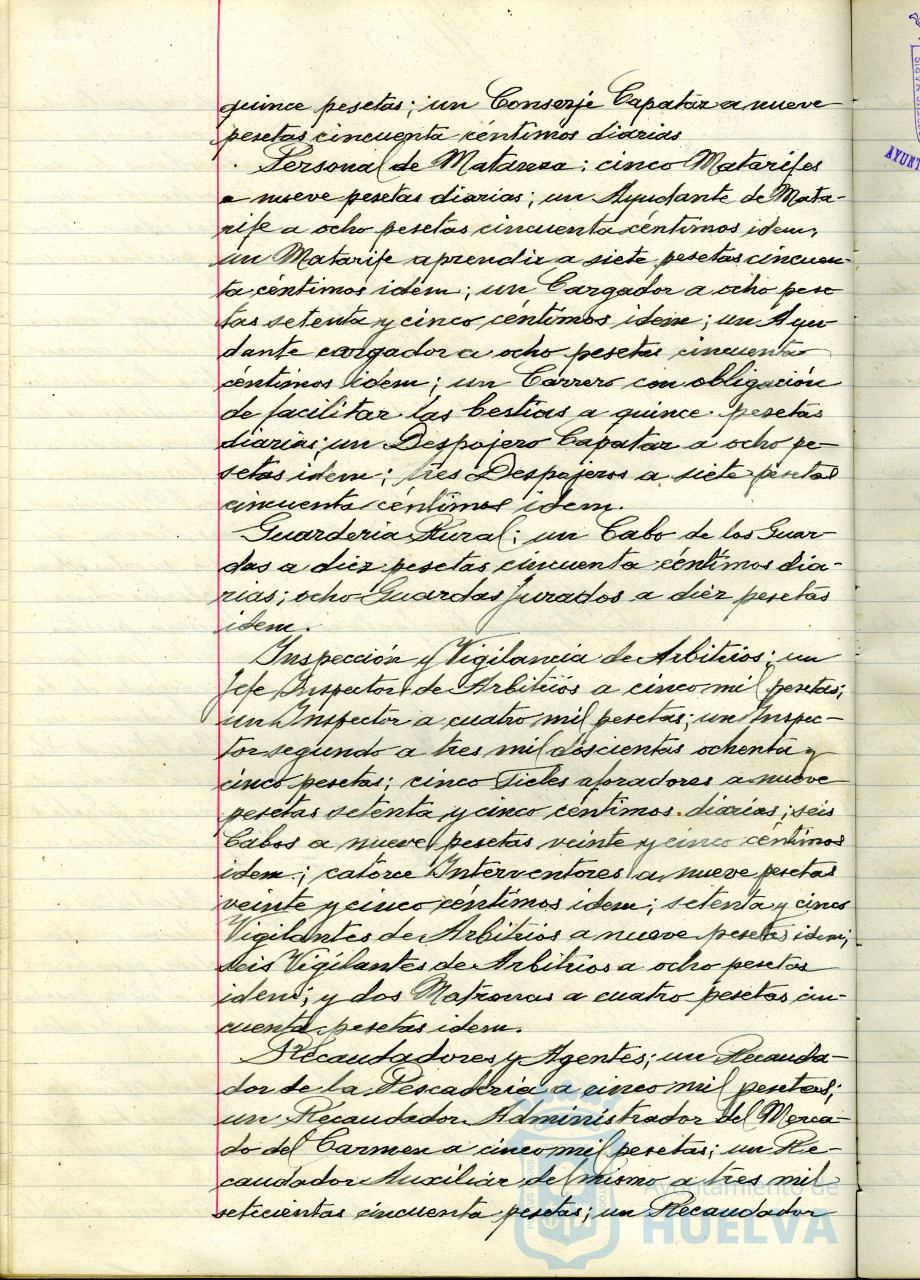 quince pesetas; un Conserje Capataz a nueve
pesetas cincuenta céntimos diarias
Personal de Matanza: cinco Matarifes
a nueve pesetas diarias; un Ayudante de Mata-
rife a ocho pesetas cincuenta céntimos idem;
un Matarife aprendiz a siete pesetas cincuen-
ta céntimos idem; un Cargador a ocho pese
tas setenta y cinco céntimos idem; un Ayu-
dante cargador a ocho pesetas cincuenta
céntimos idem; un Carrero con obligación
de facilitar las bestias a quince pesetas
diarias; un Despojero Capataz a ocho pe-
setas idem; tres Despojeros a siete pesetas
cincuenta céntimos idem.
Guarderia Rural; un Cabo de los Guar-
das a diez pesetas cincuenta céntimos dia-
rias; ocho Guardas Jurados a diez pesetas
idem.
Inspección y Vigilancia de Arbitrios; un
Jefe Inspector de Arbitrios a cinco mil pesetas;
un Inspector a cuatro mil pesetas; un Inspec-
tor segundo a tres mil doscientas ochenta y
cinco pesetas; cinco Fieles aforadores a nueve
pesetas setenta y cinco céntimos diarias; seis
Cabos a nueve pesetas veinte y cinco céntimos
idem; catorce Interventores a nueve pesetas
veinte y cinco céntimos idem; setenta y cinco
Vigilantes de Arbitrios a nueve pesetas idem;
seis Vigilantes de Arbitrios a ocho pesetas
idem; y dos Matronas a cuatro pesetas cin-
cuenta pesetas idem.
Recaudadores y Agentes; un Recauda-
dor de la Pescadería a cinco mil pesetas;
un Recaudador Administrador del Merca-
do del Carmen a cinco mil pesetas; un Re-
caudador Auxiliar del mismo a tres mil
setecientas cincuenta pesetas; un Recaudador
Ayuntamiento de
HUELVA
AYUNT